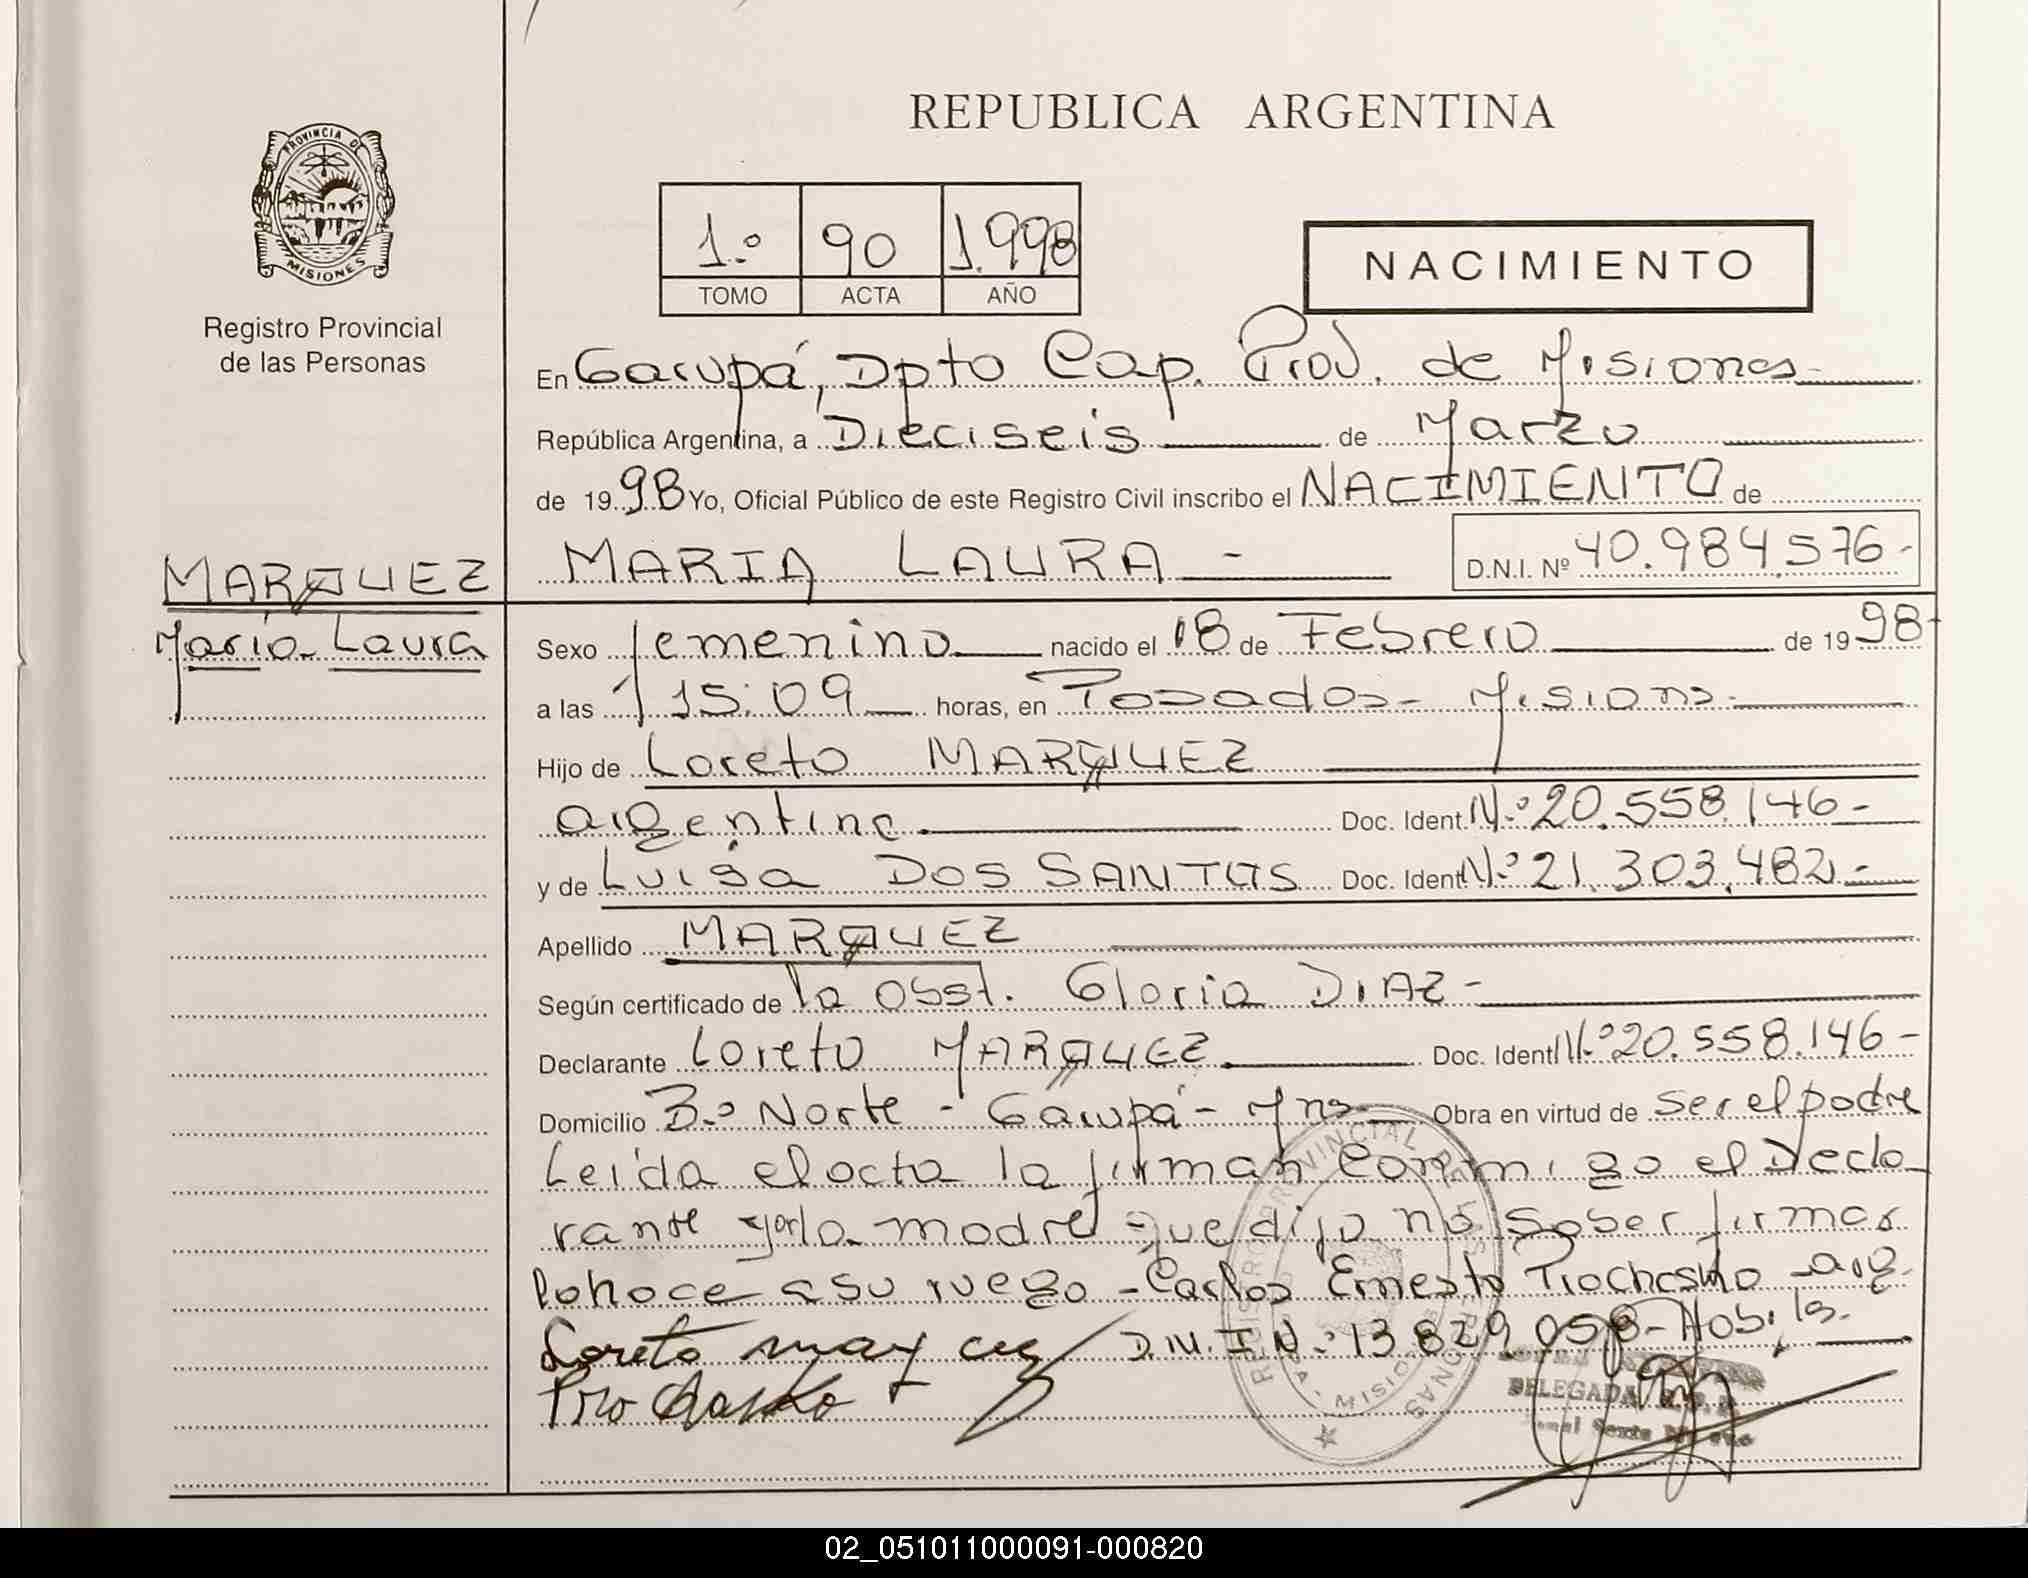 REPUBLICA ARGENTINA
PROVINCIA DE
MISIONES
Registro Provincial
de las Personas
1.º 90 1.998
TOMO ACTA AÑO
NACIMIENTO
En Garupá, Dpto Cap. Prov. de Misiones
República Argentina, a Dieciseis de Marzo
de 19 98 Yo, Oficial Público de este Registro Civil inscribo el NACIMIENTO de
MARQUEZ
María Laura
MARIA LAURA - D.N.I. Nº 40.984.576-
Sexo femenino nacido el 18 de Febrero de 19 98-
a las 15:09 horas, en Posadas - Misiones
Hijo de Loreto MARQUEZ
argentino Doc. Ident. Nº 20.558.146-
y de Luisa DOS SANTOS Doc. Ident. Nº 21.303.482-
Apellido MARQUEZ
Según certificado de la Obst. Gloria DIAZ-
Declarante Loreto MARQUEZ Doc. Ident. Nº 20.558.146-
Domicilio Bº Norte - Garupá - Mnes Obra en virtud de ser el padre
Leida el acta la firman conmigo el Decla
rante y por la madre que dijo no saber firmar
lo hace a su ruego - Carlos Ernesto Prochasko - arg.
D.N.I. Nº 13.829.058-
Loreto marquez
Prochasko
REGISTRO PROVINCIAL DE LAS PERSONAS
MISIONES
DELEGADA
02_051011000091-000820